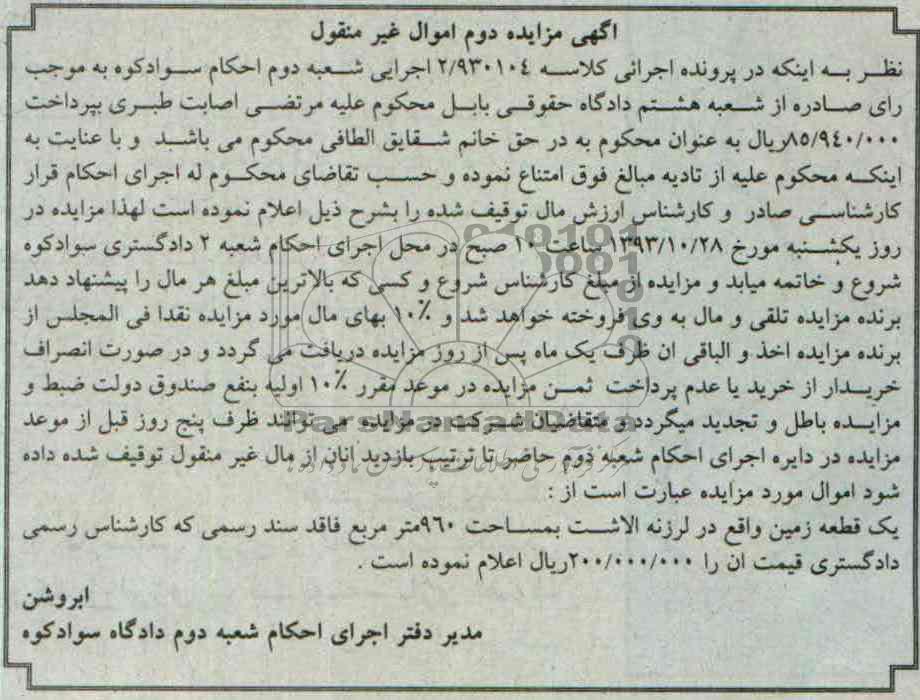 اگهی مزایده دوم اموال غیر منقول
نظر به اینکه در پرونده اجرائی کلاسه ۲/۹۳۰۱۰۴ اجرایی شعبه دوم احکام سوادکوه به موجب
رای صادره از شعبه هشتم دادگاه حقوقی بابل محکوم علیه مرتضی اصابت طبری بپرداخت
۸۵/۹٤۰/۰۰۰ریال به عنوان محکوم به در حق خانم شقایق الطافی محکوم می باشد و با عنایت به
اینکه محکوم علیه از تادیه مبالغ فوق امتناع نموده و حسب تقاضای محکوم له اجرای احکام قرار
کارشناسی صادر و کارشناس ارزش مال توقیف شده را بشرح ذیل اعلام نموده است لهذا مزایده در
روز یکشنبه مورخ ۱۳۹۳/۱۰/۲۸ ساعت ۱۰ صبح در محل اجرای احکام شعبه ۲ دادگستری سوادکوه
شروع و خاتمه میابد و مزایده از مبلغ کارشناس شروع و کسی که بالاترین مبلغ هر مال را پیشنهاد دهد
برنده مزایده تلقی و مال به وی فروخته خواهد شد و ۱۰٪ بهای مال مورد مزایده نقدا فی المجلس از
برنده مزایده اخذ و الباقی ان ظرف یک ماه پس از روز مزایده دریافت می گردد و در صورت انصراف
خریدار از خرید یا عدم پرداخت ثمن مزایده در موعد مقرر ۱۰٪ اولیه بنفع صندوق دولت ضبط و
مزایده باطل و تجدید میگردد و متقاضیان شرکت در مزایده می توانند ظرف پنج روز قبل از موعد
مزایده در دایره اجرای احکام شعبه دوم حاضر تا ترتیب بازدید انان از مال غیر منقول توقیف شده داده
شود اموال مورد مزایده عبارت است از :
یک قطعه زمین واقع در لرزنه الاشت بمساحت ۹۶۰متر مربع فاقد سند رسمی که کارشناس رسمی
دادگستری قیمت ان را ۲۰۰/۰۰۰/۰۰۰ریال اعلام نموده است .
ابروشن
مدیر دفتر اجرای احکام شعبه دوم دادگاه سوادکوه
ParsNamadData